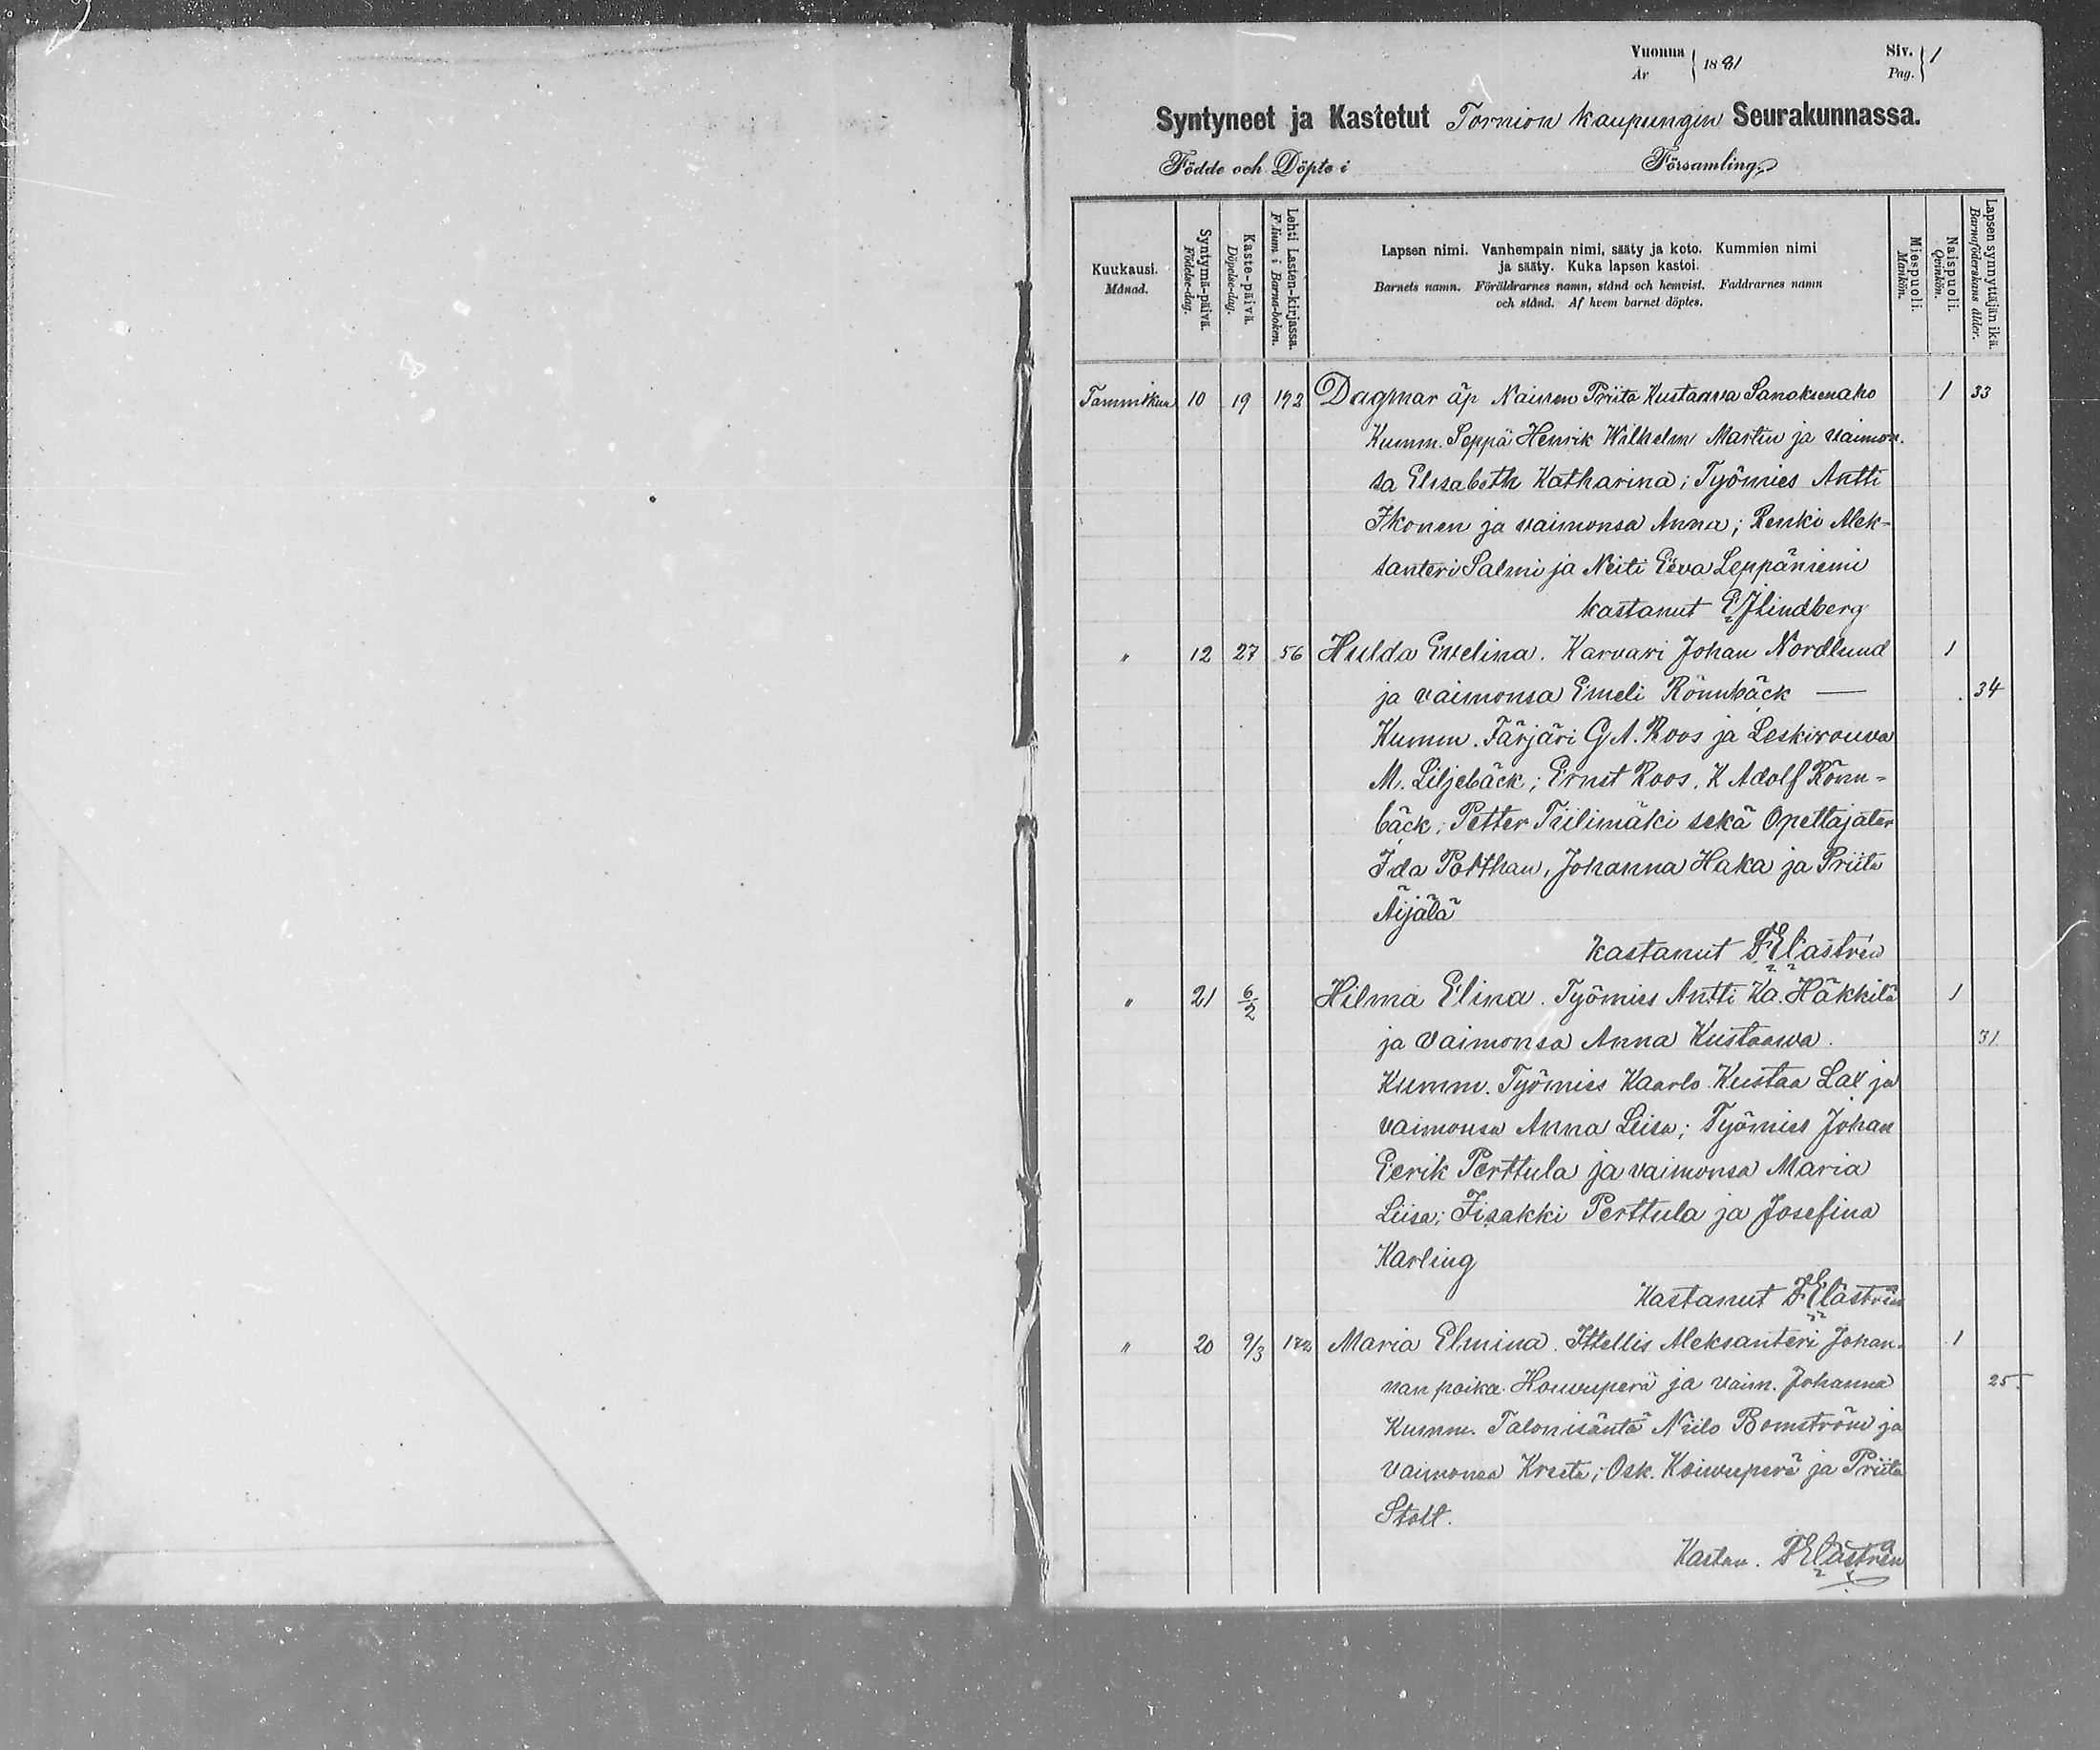 Vuonna Siv.
År 1881 Pag. 1
Syntyneet ja Kastetut Tornion Kaupungin Seurakunnassa.
Födde och Döpte i Församling.
Kuukausi. Månad.
Syntymä-päivä. Födelse-dag.
Kaste-päivä. Döpelse-dag.
Lehti Lasten-kirjassa. Folium i Barna-boken.
Lapsen nimi. Vanhempain nimi, sääty ja koto. Kummien nimi
ja sääty. Kuka lapsen kastoi.
Barnets namn. Föräldrarnes namn, stånd och hemvist. Faddrarnes namn
och stånd. Af hvem barnet döptes.
Miespuoli. Mankön.
Naispuoli. Qvinkön.
Lapsen synnyttäjän ikä. Barnaföderskans ålder.
Tammikuu 10 19 192 Dagmar äp Naisen Priita Kustaava Sanaksenaho 1 33
Kumm. Seppä Henrik Wilhelm Martin ja vaimon-
sa Elisabeth Katharina; Työmies Antti
Ikonen ja vaimonsa Anna; Renki Alek-
santeri Salmi ja Neiti Eeva Leppäniemi
kastanut E J Lindberg
" 12 27 56 Hulda Evelina. Karvari Johan Nordlund 1
ja vaimonsa Emeli Rönnbäck — 34
Kumm. Färjäri G A. Roos ja Leskirouva
M. Liljebäck; Ernst Roos. K Adolf Rönn-
bäck; Petter Tiilimäki sekä Opettajatar
Ida Polthan, Johanna Haka ja Priita
Äijälä
kastanut F E Castrén
" 21 6/2 Hilma Elina. Työmies Antti Ka. Häkkilä 1
ja vaimonsa Anna Kustaava. 31
Kumm. Työmies Kaarlo Kustaa Lax ja
vaimonsa Anna Leisa; Työmies Johan
Eerik Perttula ja vaimonsa Maria
Liisa; Iisakki Perttula ja Josefina
Karling
Kastanut F E Castrén
" 20 9/3 Maria Elmina. Ittellis Aleksanteri Johan- 1
nan poika Koivuperä ja vaim. Johanna 25.
Kumm. Talonisäntä Niilo Bomström ja
vaimonsa Kreeta; Osk. Koivuperä ja Priita
Stolt.
Kastan. F E Castrén